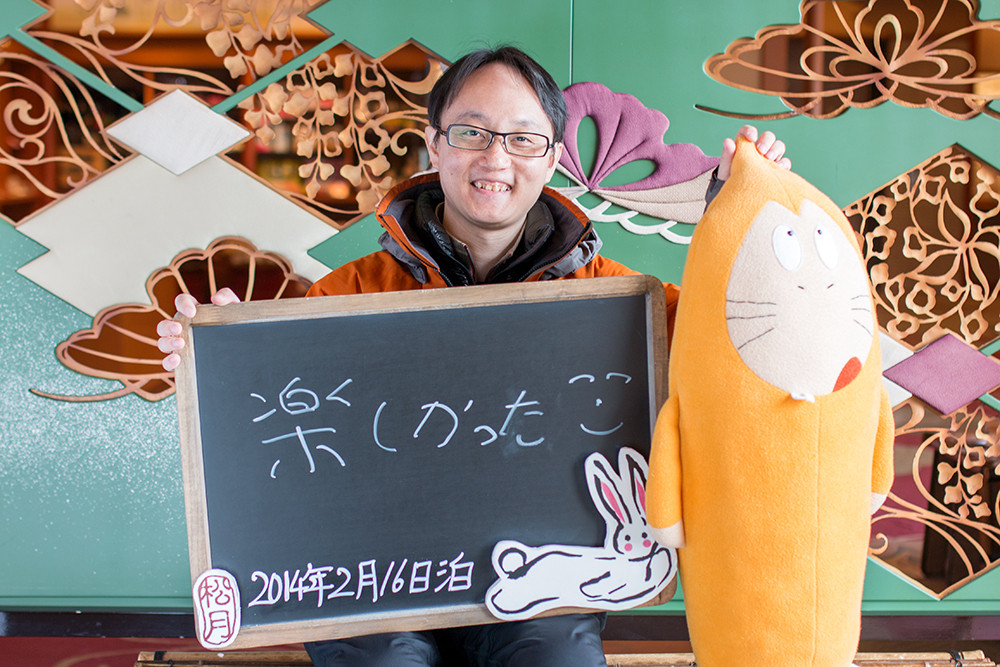 楽しかったこ
2014年2月16日泊
松月